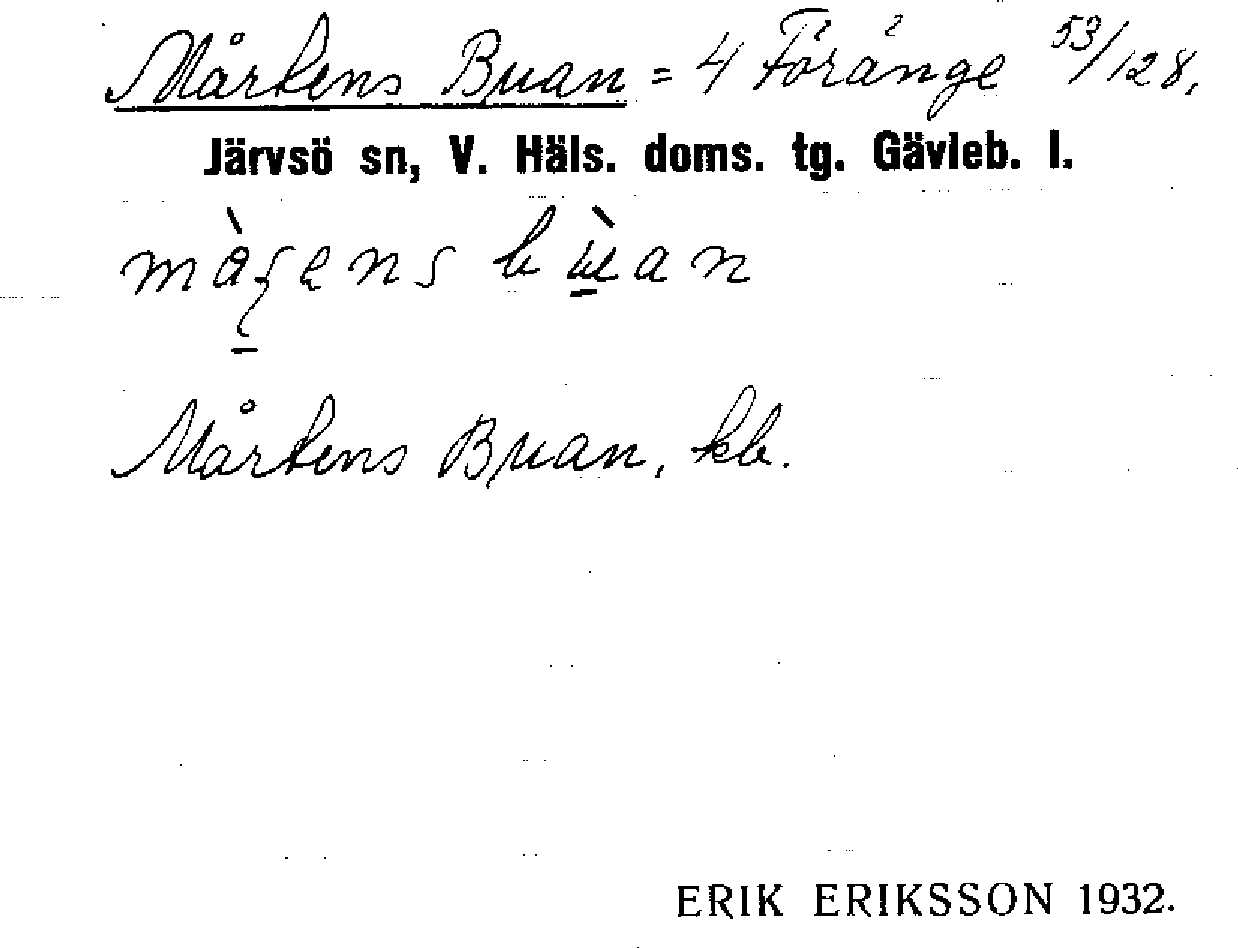 Mårtens Buan = 4 Föränge 53/128.
Järvsö sn, V. Häls. doms. tg. Gävleb. l.
Mårtens Buan, kb.
ERIK ERIKSSON 1932.